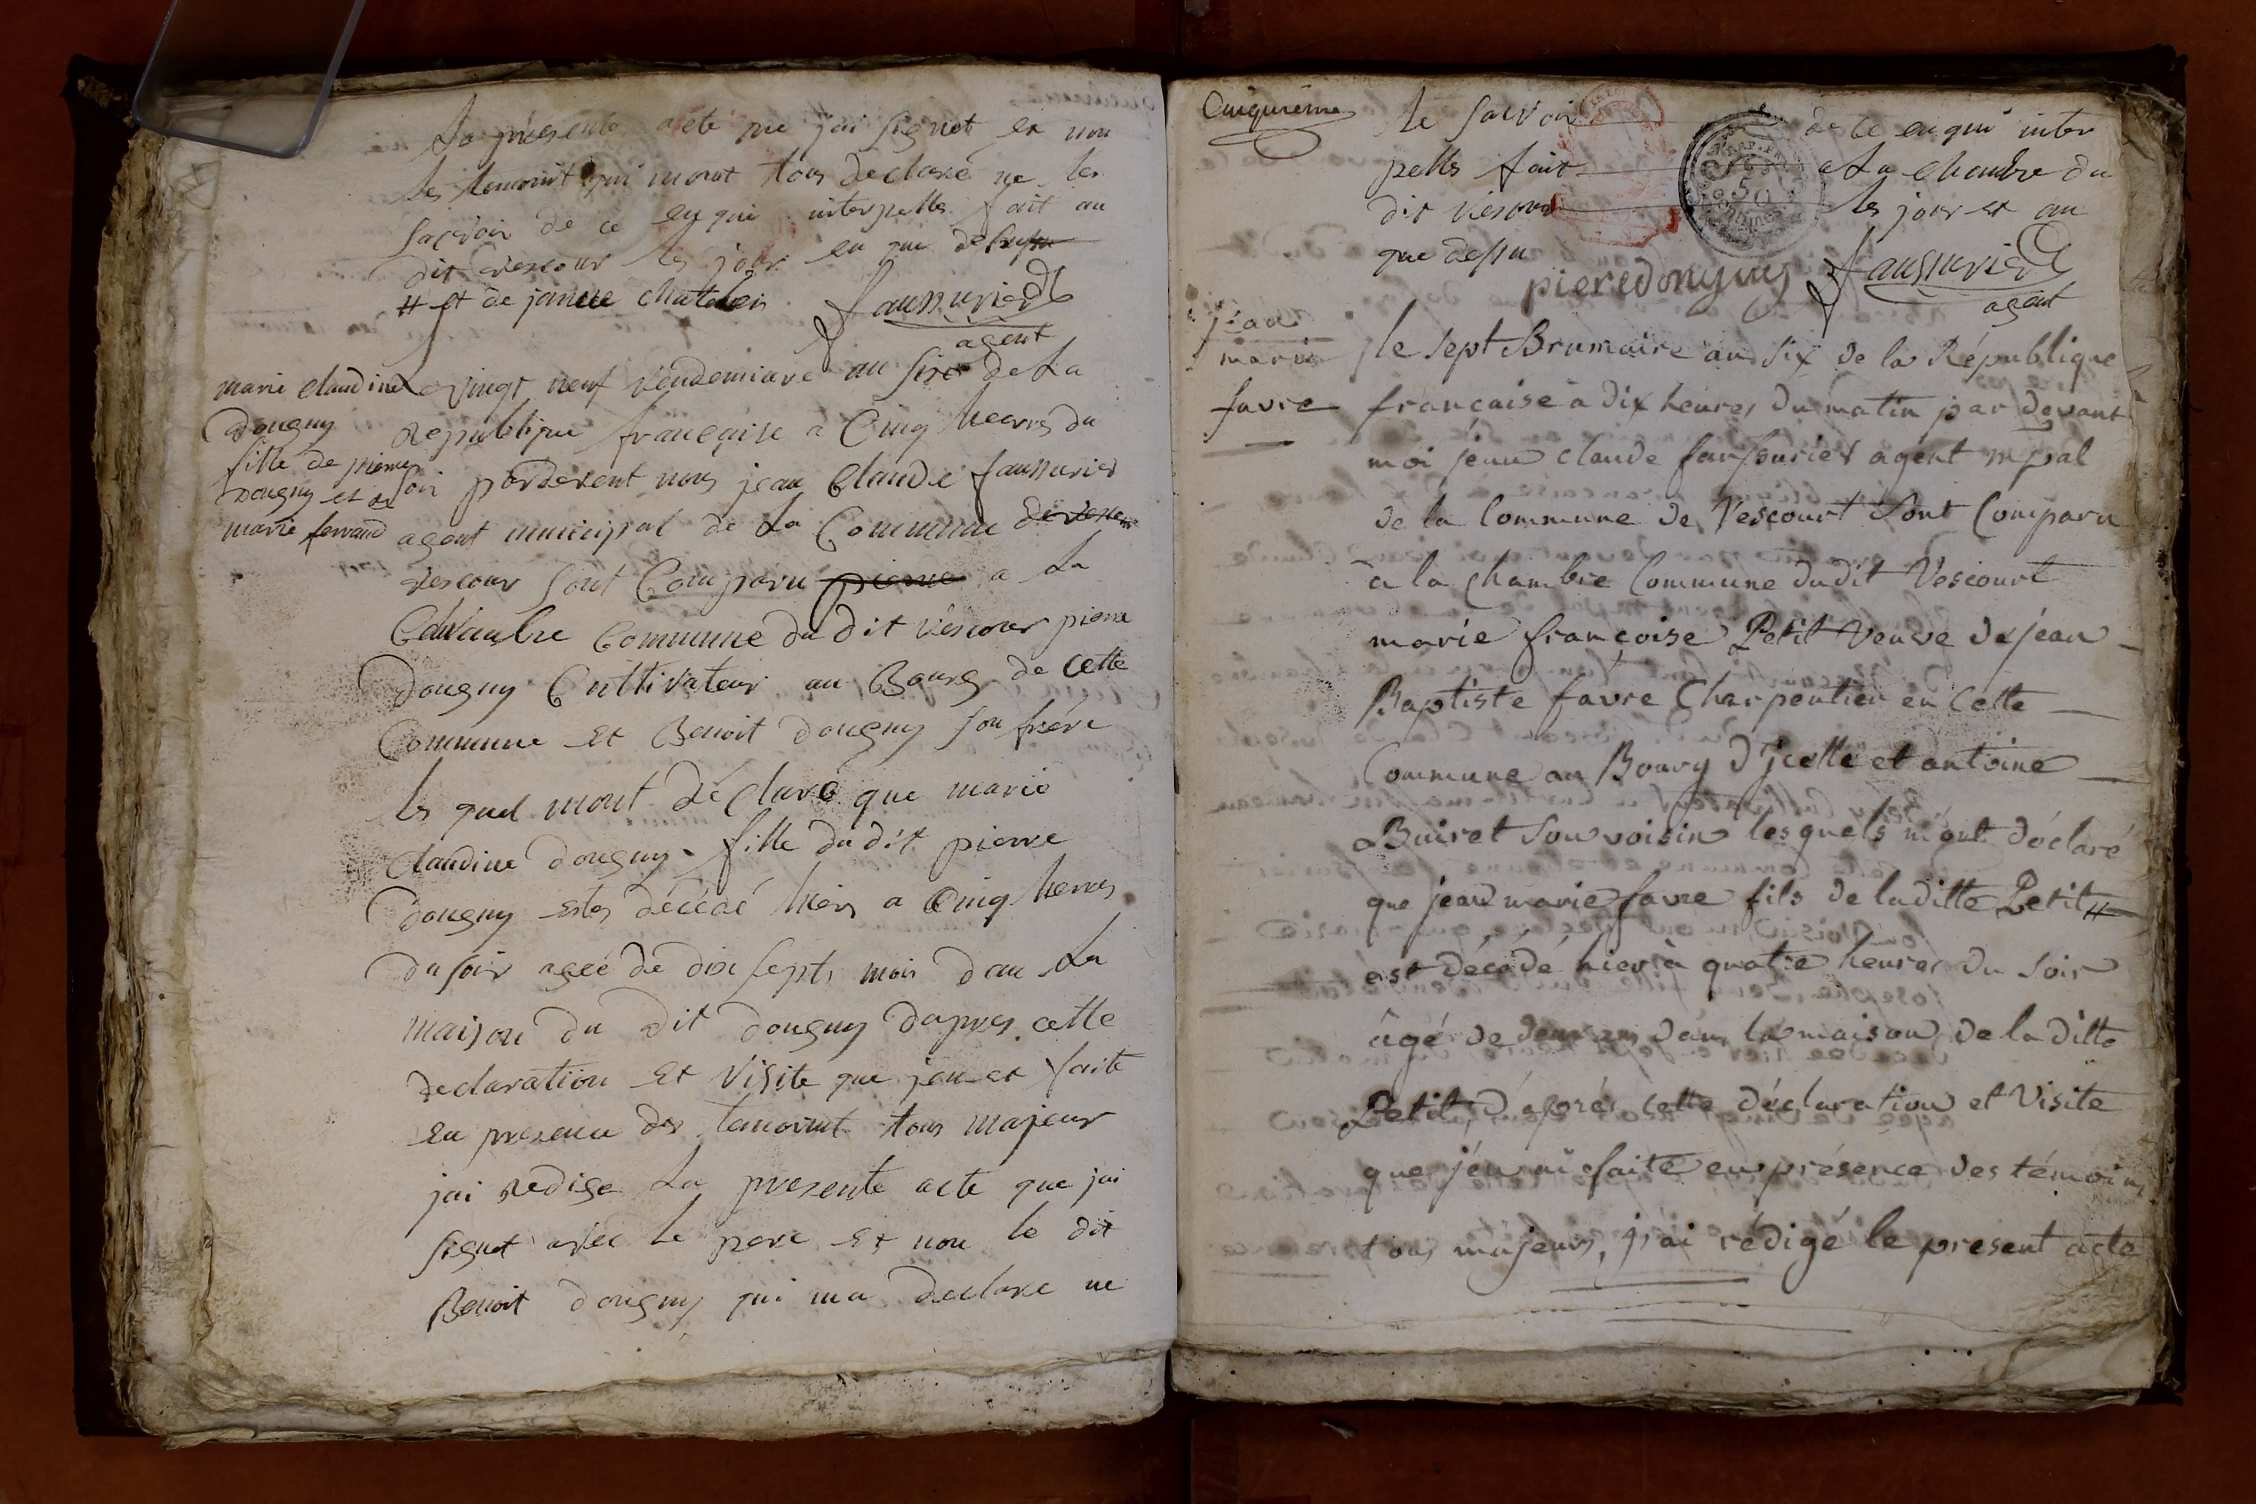 La présente acte que jai signet et non
les temoint qui mont tous declaré ne les
sacvoir de ce enqui interpelle fait au
dit vescour les jour en que dessu
# et de janne chatelain
faussurier
agent
marie claudine
Dougny
fille de pierre
Dougny et de
marie ferrand
Le vingt neuf vendemiare an six de La
Republique française a Cinq heures du
soir pardevent nous jean Claude faussurier
agent municipal de La Commune de vesc
vescour sont Comparu pierre a La
Chambre Commune du dit vescour pierre
Dougny Cultivateur au Bourg de cette
Commune et Benoit dougny son frére
les quel mont déclaré que marie
Claudine dougny fille du dit pierre
dougny estes décédé hiers a Cinq heures
du soir ageé de dix septs mois dan La
maison du dit dougny dapres cette
declaration et visite que jen et faite
en presence des temoint tous majeur
jai redige La presente acte que jai
signet avec le pere et non le dit
Benoit dougny qui ma declare ne
Cinquième
le sacvoir de ce enqui inter
pelle fait a La chambre du
dit vescour les jour et an
que dessu
pieredongny faussurier
agent
marie
favre
le sept Brumaire an six de la République
française à dix heures du matin par devant
moi jean claude faussurier agent mpal
de la Commune de Vescourt sont Comparu
à la chambre Commune dudit Vescourt
marie françoise Petit Veuve de jean
Baptiste favre Charpentier en Cette
Commune au Bourg d'Jcelle et antoine
Buiret son voisin lesquels m'ont déclaré
que jean marie favre fils de laditte Petit #
est décédé hier à quatre heures du soir
âgé de deux ans dans la maison de la ditte
Petit, d'après cette déclaration et Visite
que j'en ai faite en présence des témoins
tous majeurs, j'ai rédigé le present acte